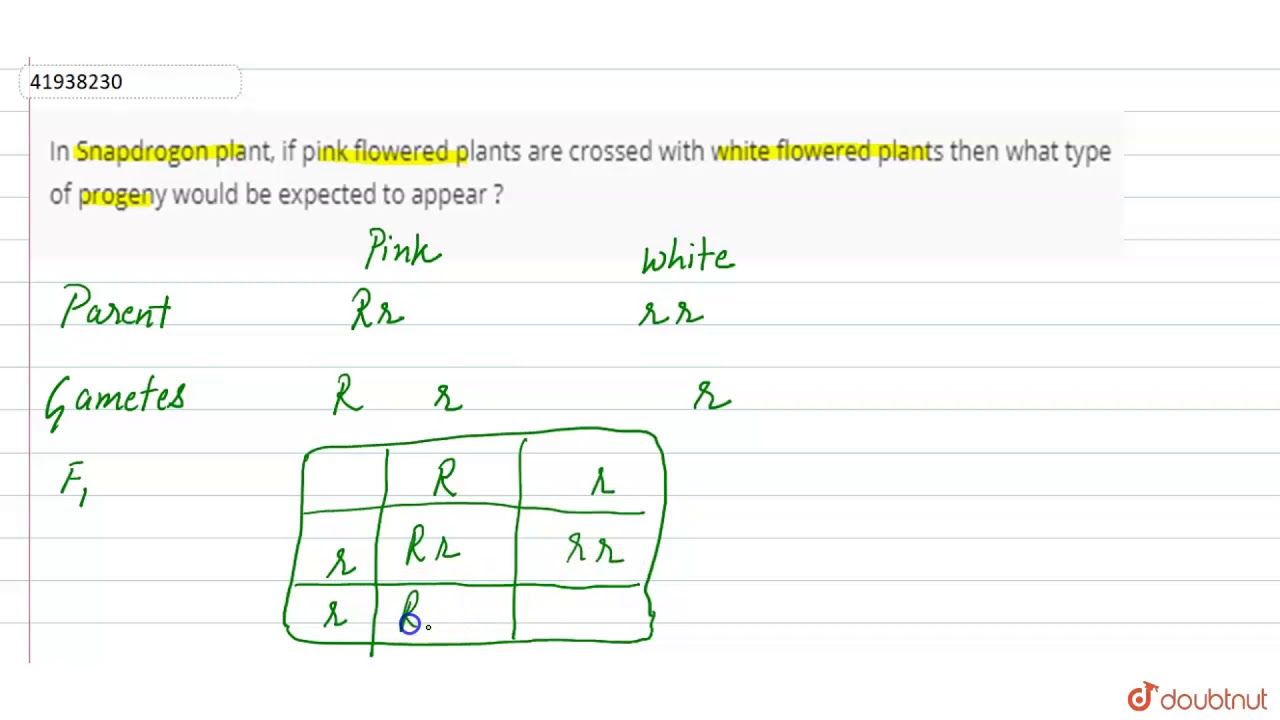 41938230
In Snapdrogon plant, if pink flowered plants are crossed with white flowered plants then what type
of progeny would be expected to appear ?
Pink White
Parent Rr rr
Gametes R r r
F1
R r
r Rr rr
r R
doubtnut